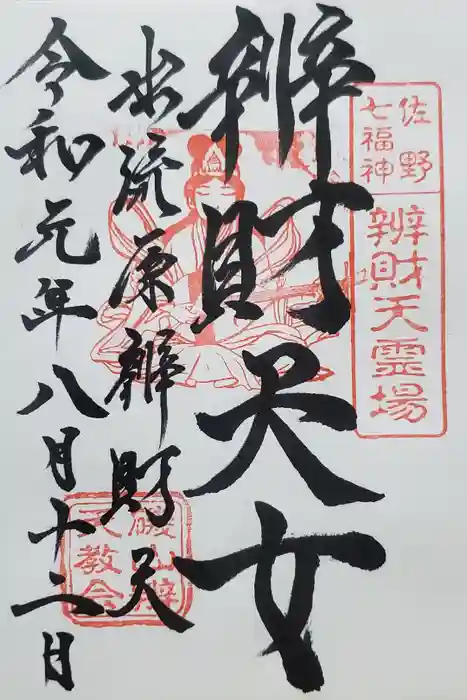 佐野
七福神
辨財天霊場
辨財天女
水流原辨財天
令和元年八月十二日
磯山辨
天教会